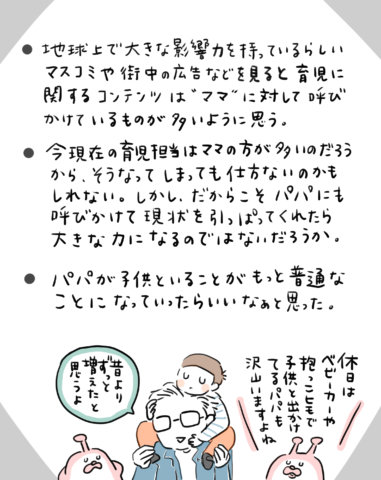 ● 地球上で大きな影響力を持っているらしい
マスコミや街中の広告などを見ると育児に
関するコンテンツは"ママ"に対して呼び
かけているものが多いように思う。
● 今現在の育児担当はママの方が多いのだろう
から、そうなってしまっても仕方ないのかも
しれない。しかし、だからこそパパにも
呼びかけて現状を引っぱってくれたら
大きな力になるのではないだろうか。
● パパが子供といることがもっと普通な
ことになっていったらいいなぁと思った。
休日は
ベビーカーや
抱っこヒモで
子供と出かけ
てるパパも
沢山いますよね
昔より
ずっと
増えたと
思うよ